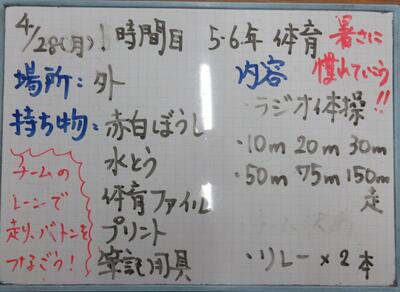 4/28(月) 1時間目 5・6年 体育
暑さに
慣れていこう!!
場所:外
持ち物:赤白ぼうし
水とう
体育ファイル
プリント
筆記用具
チームの
レーンで
走り、バトンを
つなごう!
内容
・ラジオ体操
・10m 20m 30m
・50m 75m 150m
走
・リレー×2本